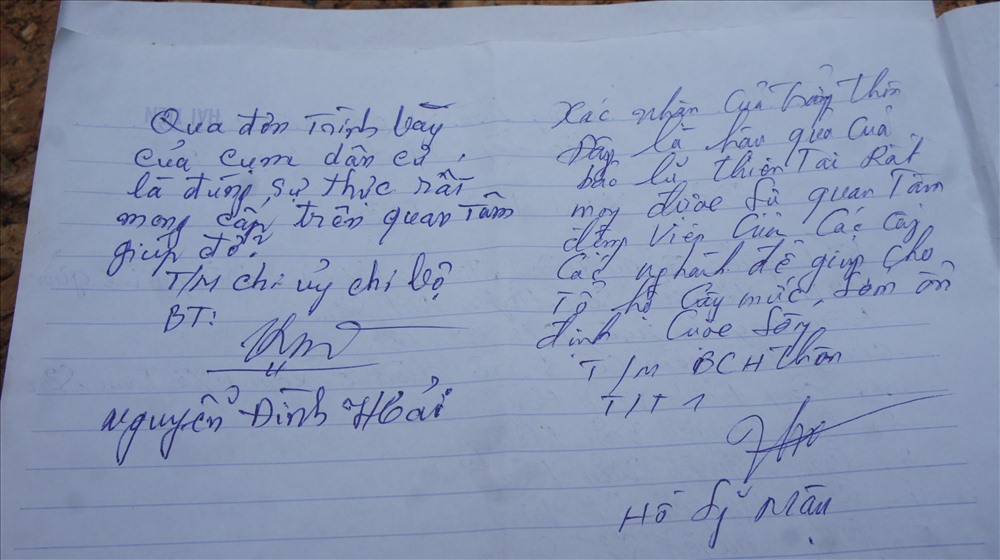 Qua đơn trình bày
của cụm dân cư,
là đúng sự thực rất
mong cấp trên quan tâm
giúp đỡ.
T/M chi ủy chi bộ
BT:
Nguyễn Đình Hải
Xác nhận của trưởng thôn
Đây là hậu quả của
bão lũ, thiên tai Rất
mong được sự quan tâm
động viên của các cấp
các nghành để giúp cho
tổ hộ Cây mức, sớm ổn
định cuộc sống
T/M BCH thôn
T/T 1
Hồ Sỹ Mậu